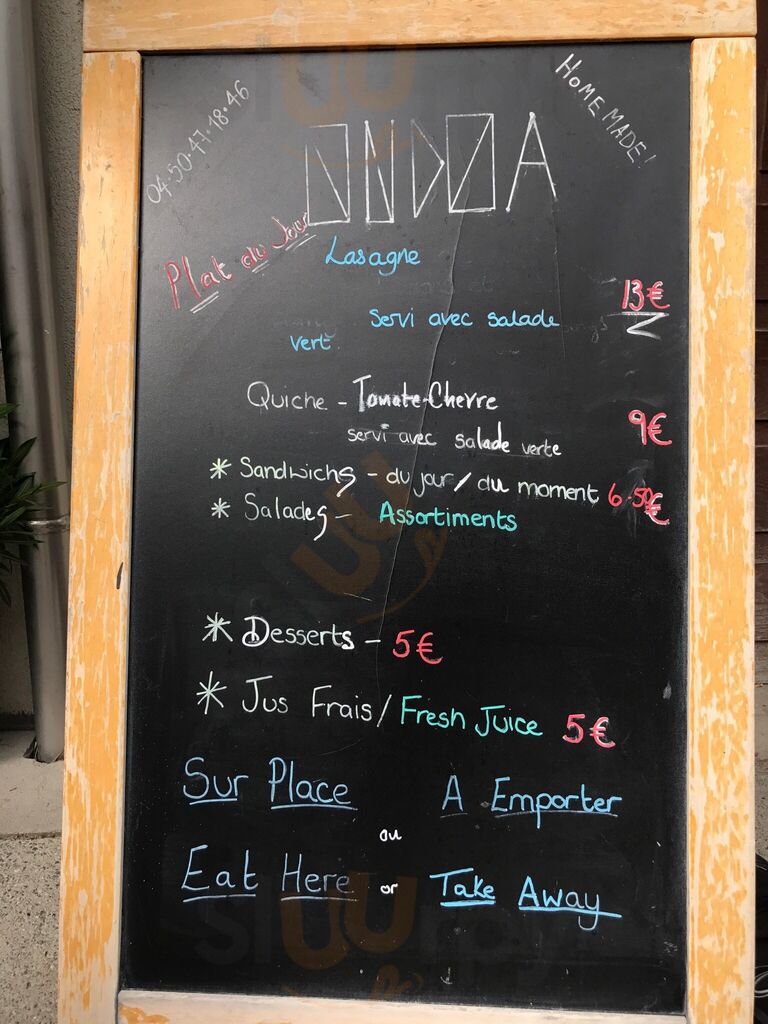 04.50.47.18.46
HOMEMADE!
Plat du Jour
Lasagne
13€
Servi avec salade
vert
Quiche - Tomate-Chevre
9€
servi avec salade verte
* Sandwichs - du jour/du moment 6.50€
* Salades - Assortiments
* Desserts - 5€
* Jus Frais/Fresh Juice 5€
Sur Place A Emporter
ou
Eat Here or Take Away